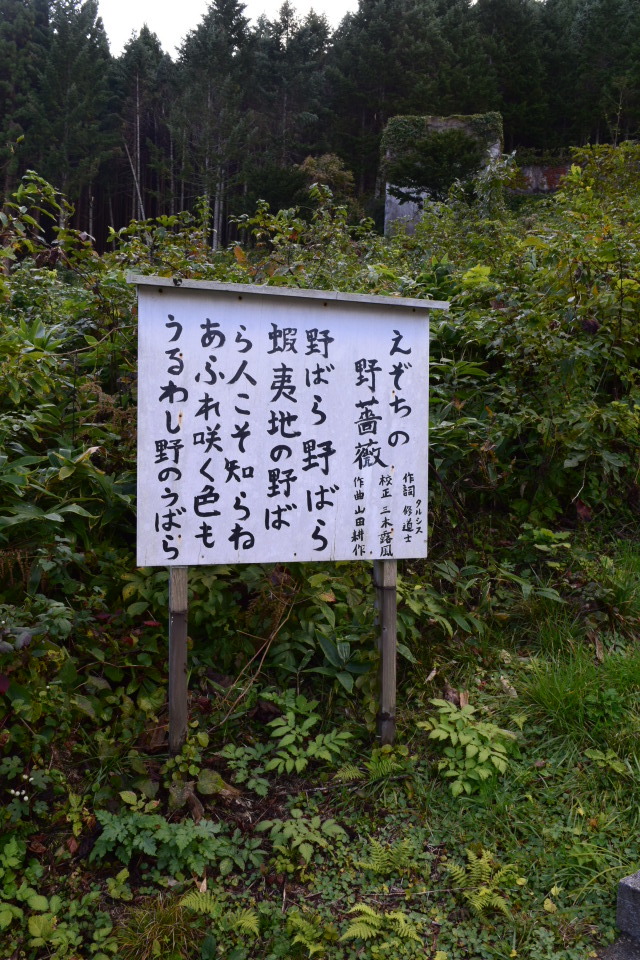 えぞちの
野薔薇
作詞 修道士タルシス
校正 三木露風
作曲 山田耕作
野ばら野ばら
蝦夷地の野ば
ら人こそ知らね
あふれ咲く色も
うるわし野のうばら